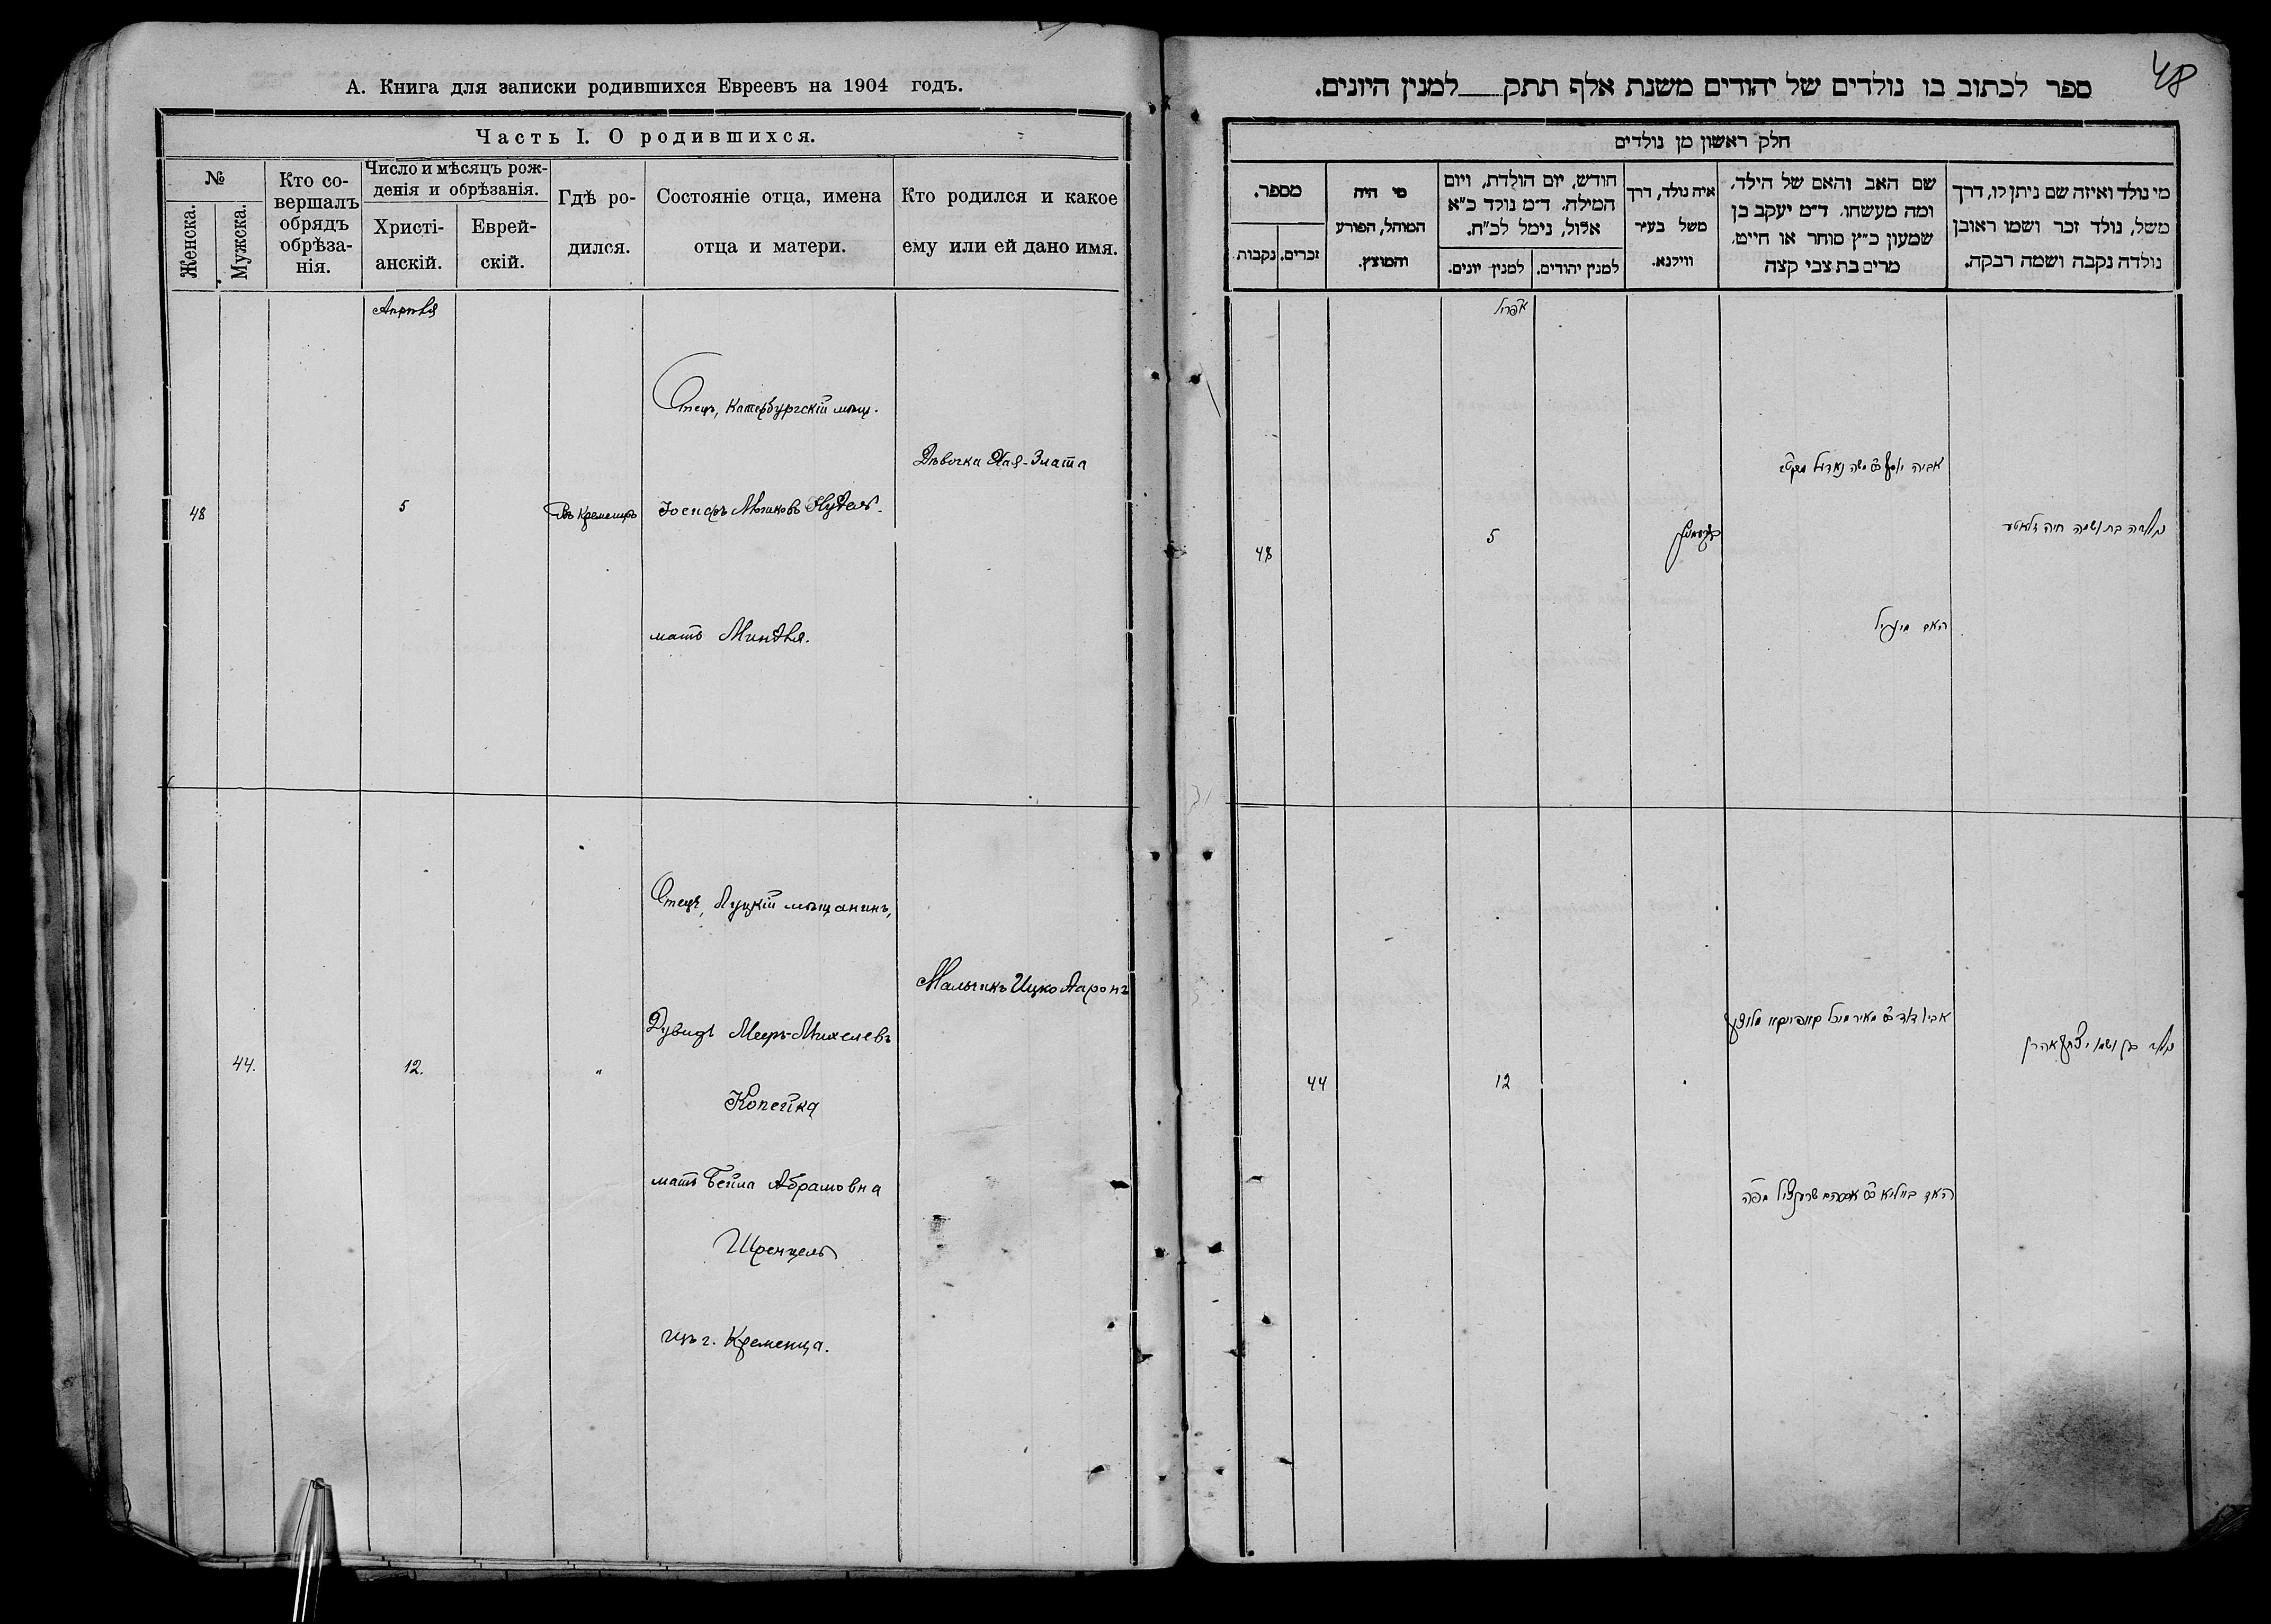 А. Книга для записки родившихся Евреевъ на 1904 годъ.
Часть I. О родившихся.
№
Женска.
Мужска.
Кто со-
вершалъ
обрядъ
обрѣза-
нія.
Число и мѣсяцъ рож-
денія и обрѣзанія.
Христі-
анскій.
Еврей-
скій.
Гдѣ ро-
дился.
Состояніе отца, имена
отца и матери.
Кто родился и какое
ему или ей дано имя.
Апрѣля
Отецъ, Катербургскій мѣщ.
Дѣвочка Хая-Злата
48
5
Въ Кременцѣ
Іосифъ Мошковъ Нудель.
мать Миндля.
Отецъ, Луцкій мѣщанинъ,
Мальчикъ Ицко Ааронъ
Дувидъ Мееръ-Михелевъ
44.
12.
"
Копейка
мать Бейла Абрамовна
Шренцель
изъ г. Кременца.
48
ספר לכתוב בו נולדים של יהודים משנת אלף תתק למנין היונים.
חלק ראשון מן נולדים
מי נולד ואיזה שם ניתן לו, דרך
משל, נולד זכר ושמו ראובן
נולדה נקבה ושמה רבקה.
שם האב והאם של הילד,
ומה מעשהו. ד״מ יעקב בן
שמעון כ״ץ סוחר או חייט,
מרים בת צבי קצה
איה נולד, דרך
משל בעיר
ווילנא.
חודש, יום הולדת, ויום
המילה. ד״מ נולד כ״א
אלול, נימל לכ״ח.
למנין יהודים.
למנין יונים.
מי היה
המוהל, הפורע
והמוצץ.
מספר.
זכרים.
נקבות
אפריל
אביה יוסף משה נאדעל
נולדה בת ושמה חיה זלאטע
5
48
האם מינדיל
אביו דוד מאיר מיכל קאפייקא
נולד בן ושמו יצחק אהרן
44
12
האם ביילא אברהם שרענציל